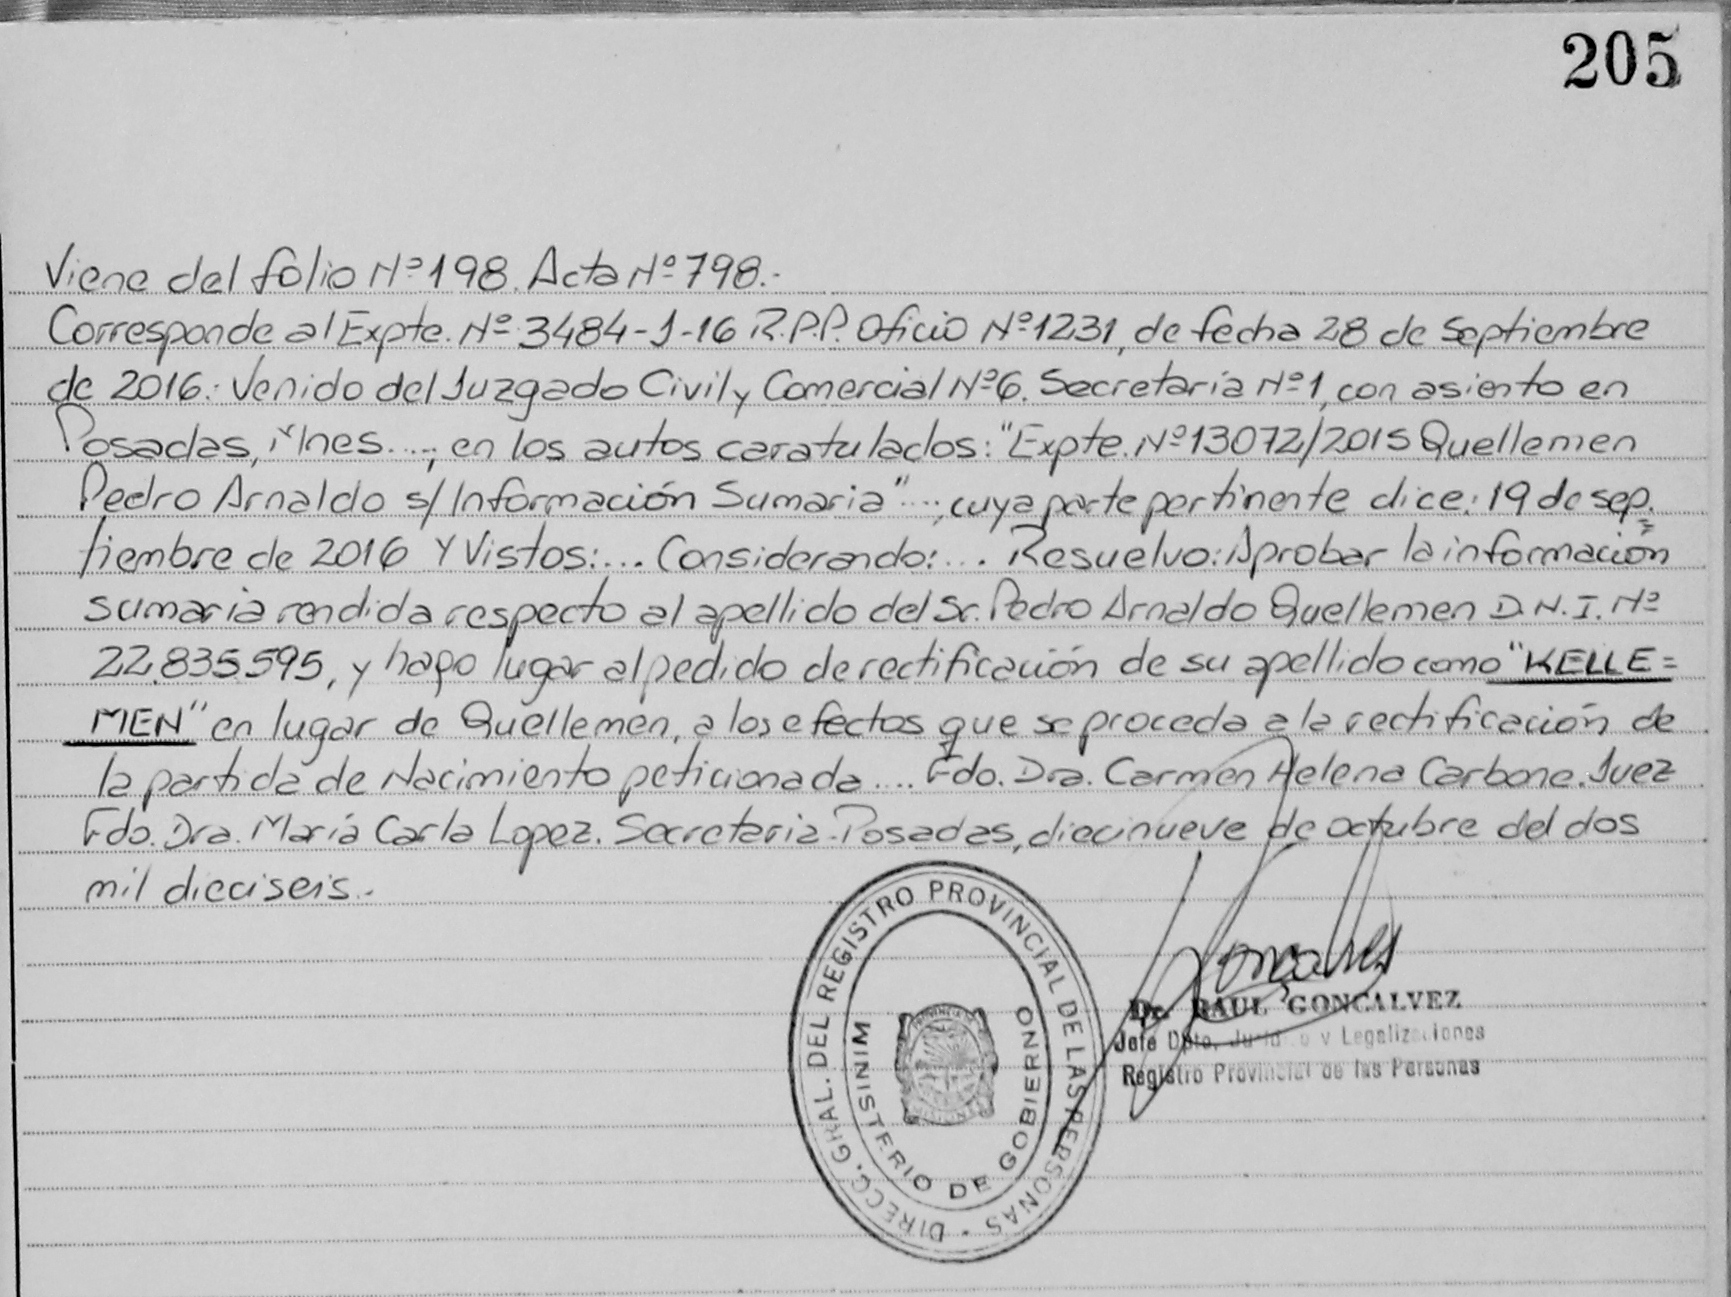 205
Viene del folio Nº 198. Acta Nº 798.-
Corresponde al Expte. Nº 3484-J-16 R.P.P. Oficio Nº 1231, de fecha 28 de Septiembre
de 2016.- Venido del Juzgado Civil y Comercial Nº 6. Secretaría Nº 1, con asiento en
Posadas, Mnes...., en los autos caratulados: "Expte. Nº 13072/2015 Quellemen
Pedro Arnaldo s/ Información Sumaria"...., cuya parte pertinente dice: 19 de sep=
tiembre de 2016 Y Vistos:... Considerando:... Resuelvo: Aprobar la información
sumaria rendida respecto al apellido del Sr. Pedro Arnaldo Quellemen D.N.I. Nº
22.835.595, y hago lugar al pedido de rectificación de su apellido como "KELLE=
MEN" en lugar de Quellemen, a los efectos que se proceda a la rectificación de
la partida de Nacimiento peticionada.... Fdo. Dra. Carmen Helena Carbone. Juez
Fdo. Dra. María Carla Lopez. Secretaria.- Posadas, diecinueve de octubre del dos
mil dieciseis.-
DIRECC. GRAL. DEL REGISTRO PROVINCIAL DE LAS PERSONAS
MINISTERIO DE GOBIERNO
PROVINCIA DE
MISIONES
Dr. RAUL GONCALVEZ
Jefe Dpto. y Legalizaciones
Registro Provincial de las Personas